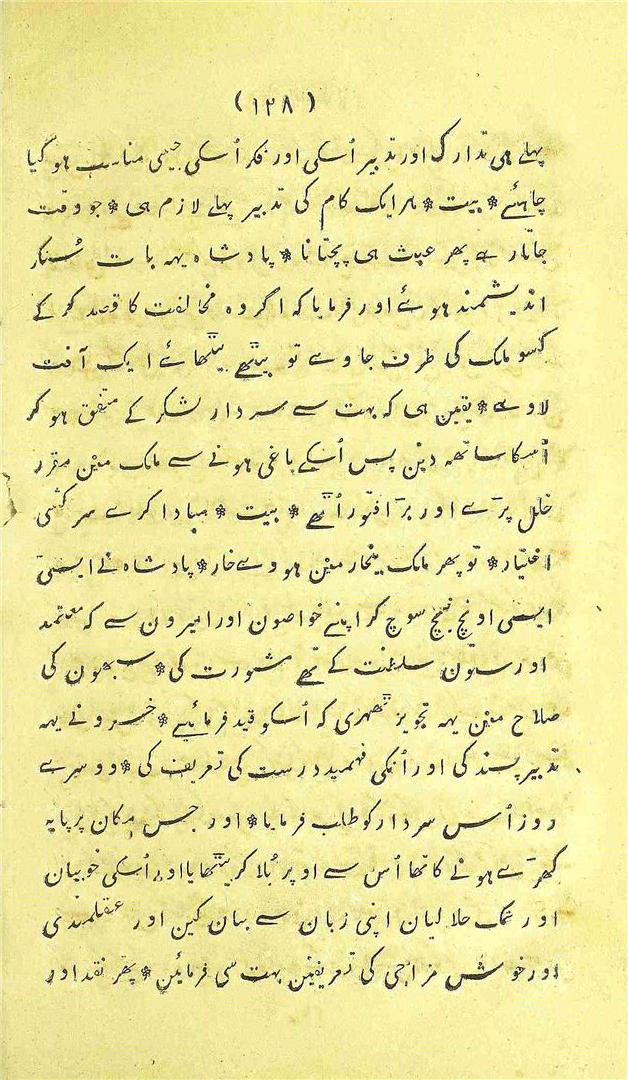 (۱۲۸)
پہلے ہی تدارک اور تدبیر اُسکی اور فکر اُسکی جیسی مناسب ہو کیا
چاہئے * بیت * ہر ایک کام کی تدبیر پہلے لازم ہی * جو وقت
جاتا رہے پھر عبث ہی پچتانا * پادشاہ یہہ بات سُنکر
اندیشمند ہوئے اور فرمایا کہ اگر وہ مخالفت کا قصد کر کے
کسو ملک کی طرف جاوے تو بیٹھے بیٹھائے ایک آفت
لاوے * یقین ہی کہ بہت سے سردار لشکر کے متفق ہو کر
اُسکا ساتھہ دین پس اُسکے باغی ہونے سے ملک مین مقرر
خلل پڑے اور بڑا فتور اُٹھے * بیت * مبادا کرے سرکشی
اختیار * تو پھر ملک مین ہووے خار * پادشاہ نے ایسی
ایسی اونچ نیچ سوچ کر اپنے خواصون اور امیرون سے کہ معتمد
اور ستون سلطنت کے تھے مشورت کی * سبھون کی
صلاح مین یہہ تجویز ٹھہری کہ اُسکو قید فرمائیے * خسرو نے یہہ
تدبیر پسند کی اور اُنکی فہمید درست کی تعریف کی * دوسرے
روز اُس سردار کو طلب فرمایا * اور جس مکان پر پایہ
کھڑے ہونے کا تھا اُس سے اوپر بُلا کر بیٹھایا اور اُسکی خوبیان
اور نمک حلالیان اپنی زبان سے بیان کین اور عقلمندی
اور خوش مزاجی کی تعریفین بہت سی فرمائین * پھر نقد اور